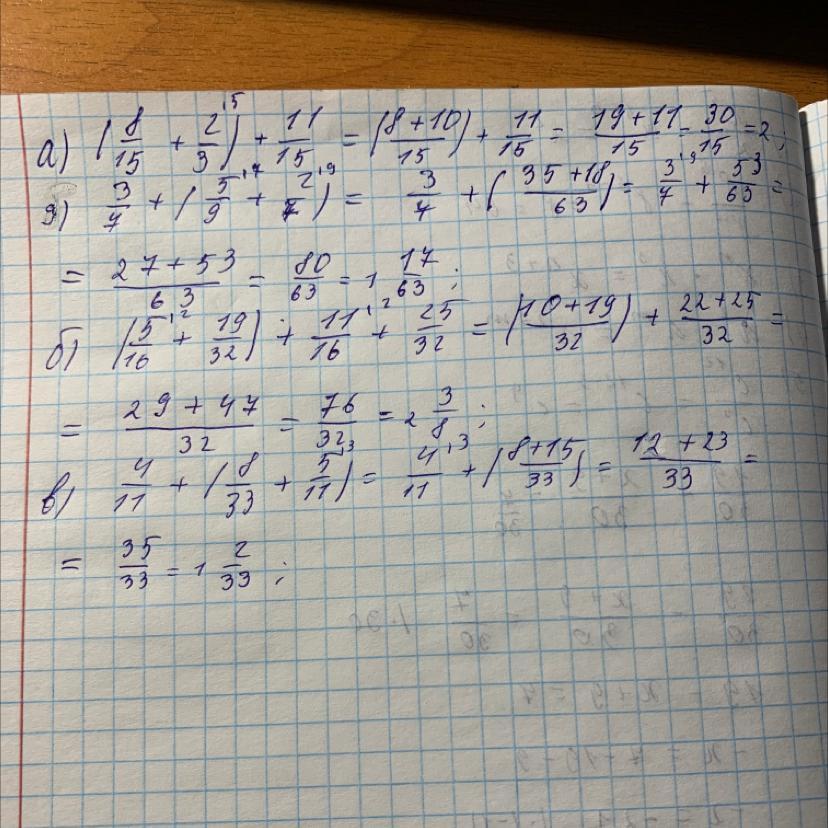 а) (8/15 + 2/3^15) + 11/15 = (8+10/15) + 11/15 = 19+11/15 = 30/15 = 2;
д) 3/7 + (5/9^17 + 2/7^19) = 3/7 + (35+18/63) = 3/7^19 + 53/63 =
= 27+53/63 = 80/63 = 1 17/63;
б) (5/16^12 + 19/32) + 11/16^12 + 25/32 = (10+19/32) + 22+25/32 =
= 29+47/32 = 76/32 = 2 3/8;
в) 4/11 + (8/33 + 5/11^13) = 4/11^13 + (8+15/33) = 12+23/33 =
= 35/33 = 1 2/33;